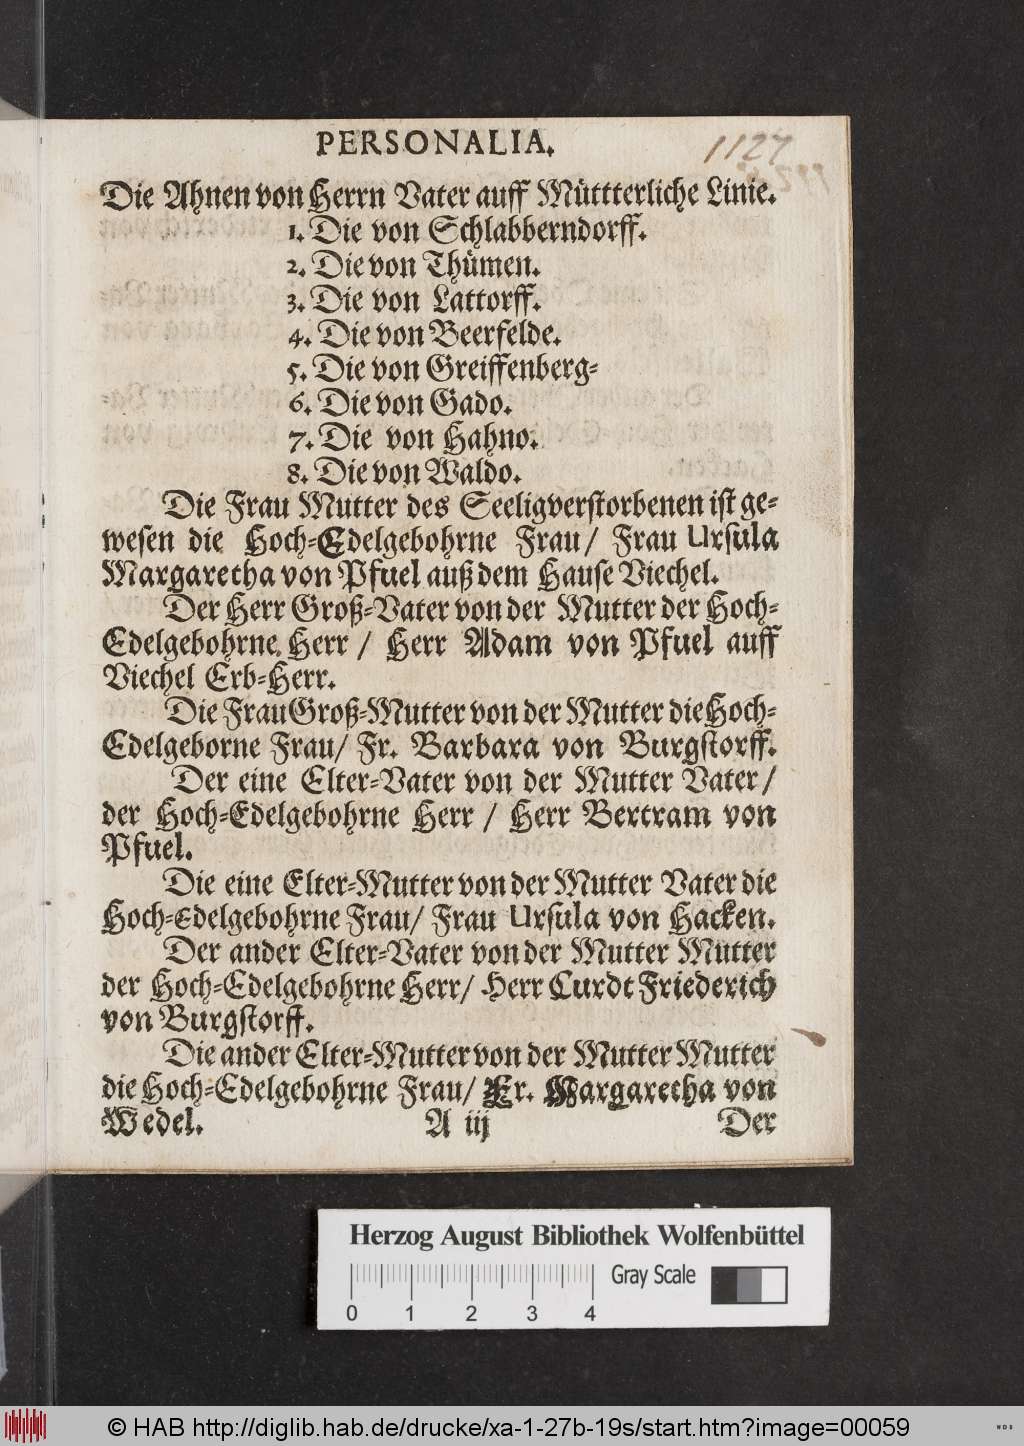 PERSONALIA.
1127
Die Ahnen von Herrn Vater auff Müttterliche Linie.
1. Die von Schlabberndorff.
2. Die von Thümen.
3. Die von Lattorff.
4. Die von Beerfelde.
5. Die von Greiffenberg-
6. Die von Gado.
7. Die von Hahno.
8. Die von Waldo.
Die Frau Mutter des Seeligverstorbenen ist ge-
wesen die Hoch-Edelgebohrne Frau/ Frau Ursula
Margaretha von Pfuel auß dem Hause Viechel.
Der Herr Groß-Vater von der Mutter der Hoch-
Edelgebohrne Herr / Herr Adam von Pfuel auff
Viechel Erb-Herr.
Die Frau Groß-Mutter von der Mutter die Hoch-
Edelgeborne Frau/ Fr. Barbara von Burgstorff.
Der eine Elter-Vater von der Mutter Vater/
der Hoch-Edelgebohrne Herr / Herr Bertram von
Pfuel.
Die eine Elter-Mutter von der Mutter Vater die
Hoch-Edelgebohrne Frau/ Frau Ursula von Hacken.
Der ander Elter-Vater von der Mutter Mutter
der Hoch-Edelgebohrne Herr/ Herr Curdt Friederich
von Burgstorff.
Die ander Elter-Mutter von der Mutter Mutter
die Hoch-Edelgebohrne Frau/ Fr. Margaretha von
Wedel. A iij Der
Herzog August Bibliothek Wolfenbüttel
Gray Scale
0 1 2 3 4
© HAB http://diglib.hab.de/drucke/xa-1-27b-19s/start.htm?image=00059